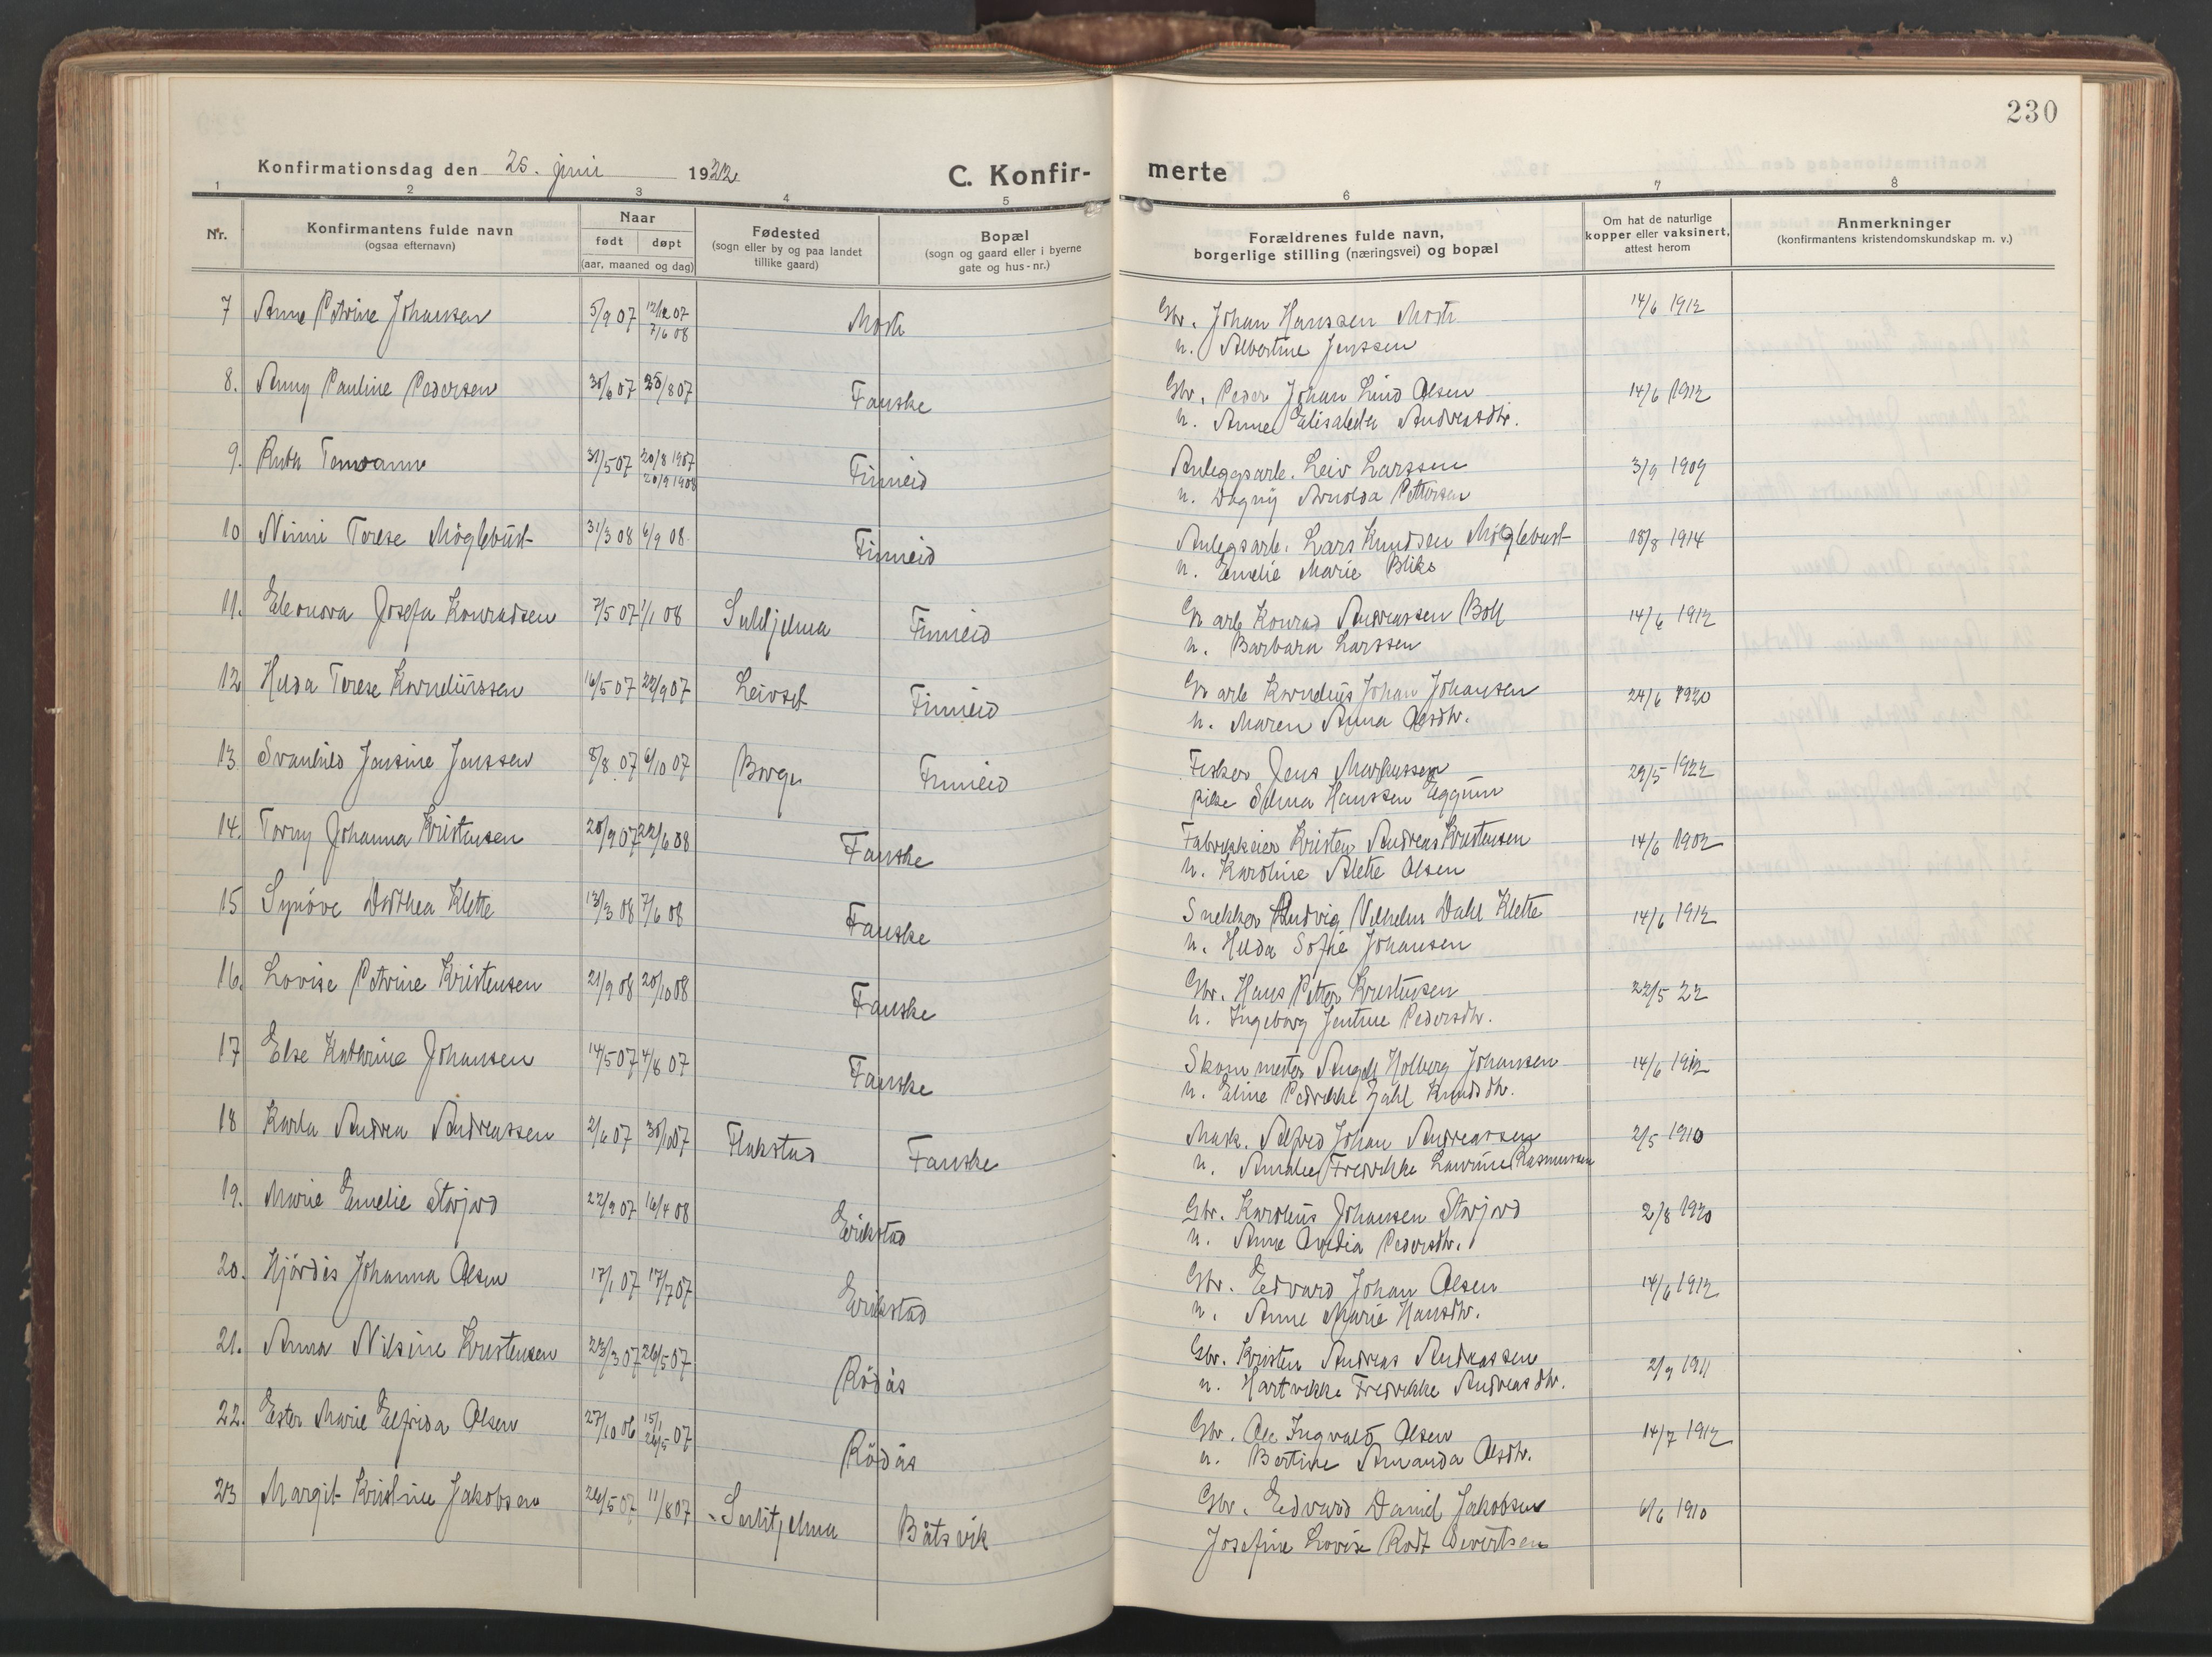 230
Konfirmationsdag den 25. juni 1922
C. Konfirmerte
1 2 3 4 5 6 7 8
Nr.
Konfirmantens fulde navn
(ogsaa efternavn)
Naar
født døpt
(aar, maaned og dag)
Fødested
(sogn eller by og paa landet
tillike gaard)
Bopæl
(sogn og gaard eller i byerne
gate og hus-nr.)
Forældrenes fulde navn,
borgerlige stilling (næringsvei) og bopæl
Om hat de naturlige
kopper eller vaksinert,
attest herom
Anmerkninger
(konfirmantens kristendomskundskap m. v.)
7 Anne Petrine Johansen 5/9 07 12/12 07 Mosti Gbr. Johan Hanssen Mosti 14/6 1912
7/6 08 h. Albertine Jenssen
8. Anny Pauline Pedersen 30/6 07 25/8 07 Fauske Gbr. Peder Johan Lind Olsen 14/6 1912
h. Anne Elisabeth Andreasdtr.
9. Ruth 31/5 07 20/8 1907 Finneid Anleggsarb. Leiv Larssen 3/9 1909
20/9 1908 h. Dagny Arnolda Pettersen
10 Ninni Terese Møglebust 31/3 08 6/9 08 Finneid Anlegsarb. Lars Knudsen Møglebust 18/8 1914
h. Emelie Marie Bliks
11. Eleonora Josefa Konradsen 7/5 07 1/1 08 Sulitjelma Finneid Gr arb Konrad Andreassen Boll 14/6 1912
h. Barbara Larssen
12 Hilda Terese Korneliussen 16/5 07 22/9 07 Leivset Finneid Gr arb Kornelius Johan Johansen 24/6 1920
h. Maren Anna Olsdtr.
13. Svanhild Jensine Jenssen 8/8 07 6/10 07 Borge Finneid Fisker Jens Markussen 29/5 1922
pike Selma Hanssen Eggum
14. Torny Johanna Kristensen 20/9 07 22/6 08 Fauske Fabrikkeier Kristen Andreas Kristensen 14/6 1902
h. Karoline Alette Olsen
15 Synöve Dorthea Klette 13/3 08 7/6 08 Fauske Snekker Ludvig Vilhelm Dahl Klette 14/6 1912
h. Hilda Sofie Johansen
16. Lovise Petrine Kristensen 21/9 08 20/10 08 Fauske Gbr. Hans Petter Kristensen 22/5 22
h. Ingeborg Jentine Pedersdtr.
17 Else Kathrine Johansen 14/5 07 4/8 07 Fauske Skommester Angell Holberg Johansen 14/6 1912
h. Eline Petrikke Zahl Knudsdtr.
18 Karla Andrea Andreassen 2/6 07 30/10 07 Flakstad Fauske Mask. Alfred Johan Andreassen 2/5 1910
h. Amalie Fredrikke Lavrine Rasmussen
19. Marie Emelie Storjord 22/9 07 16/4 08 Erikstad Gbr. Karolius Johansen Storjord 2/8 1920
h. Anne Ovedia Pedersdtr.
20. Hjördis Johanna Olsen 17/1 07 17/7 07 Erikstad Gbr. Edvard Johan Olsen 14/6 1912
h. Anne Marie Hansdtr.
21. Anna Nilsine Kristensen 23/3 07 26/5 07 Rödås Gbr. Kristen Andreas Andreassen 2/9 1911
h. Hartvikke Fredrikke Andreasdtr.
22. Ester Marie Elfrida Olsen 27/10 06 15/1 Rödås Gbr. Ole Ingvald Olsen 14/7 1912
26/5 07 h. Bertine Amanda Olsdtr.
23 Margit Kristine Jakobsen 26/5 07 11/8 07 Sulitjelma Båtsvik Gbr. Edvard Daniel Jakobsen 6/6 1910
Josefine Lovise Rodt Sivertsen